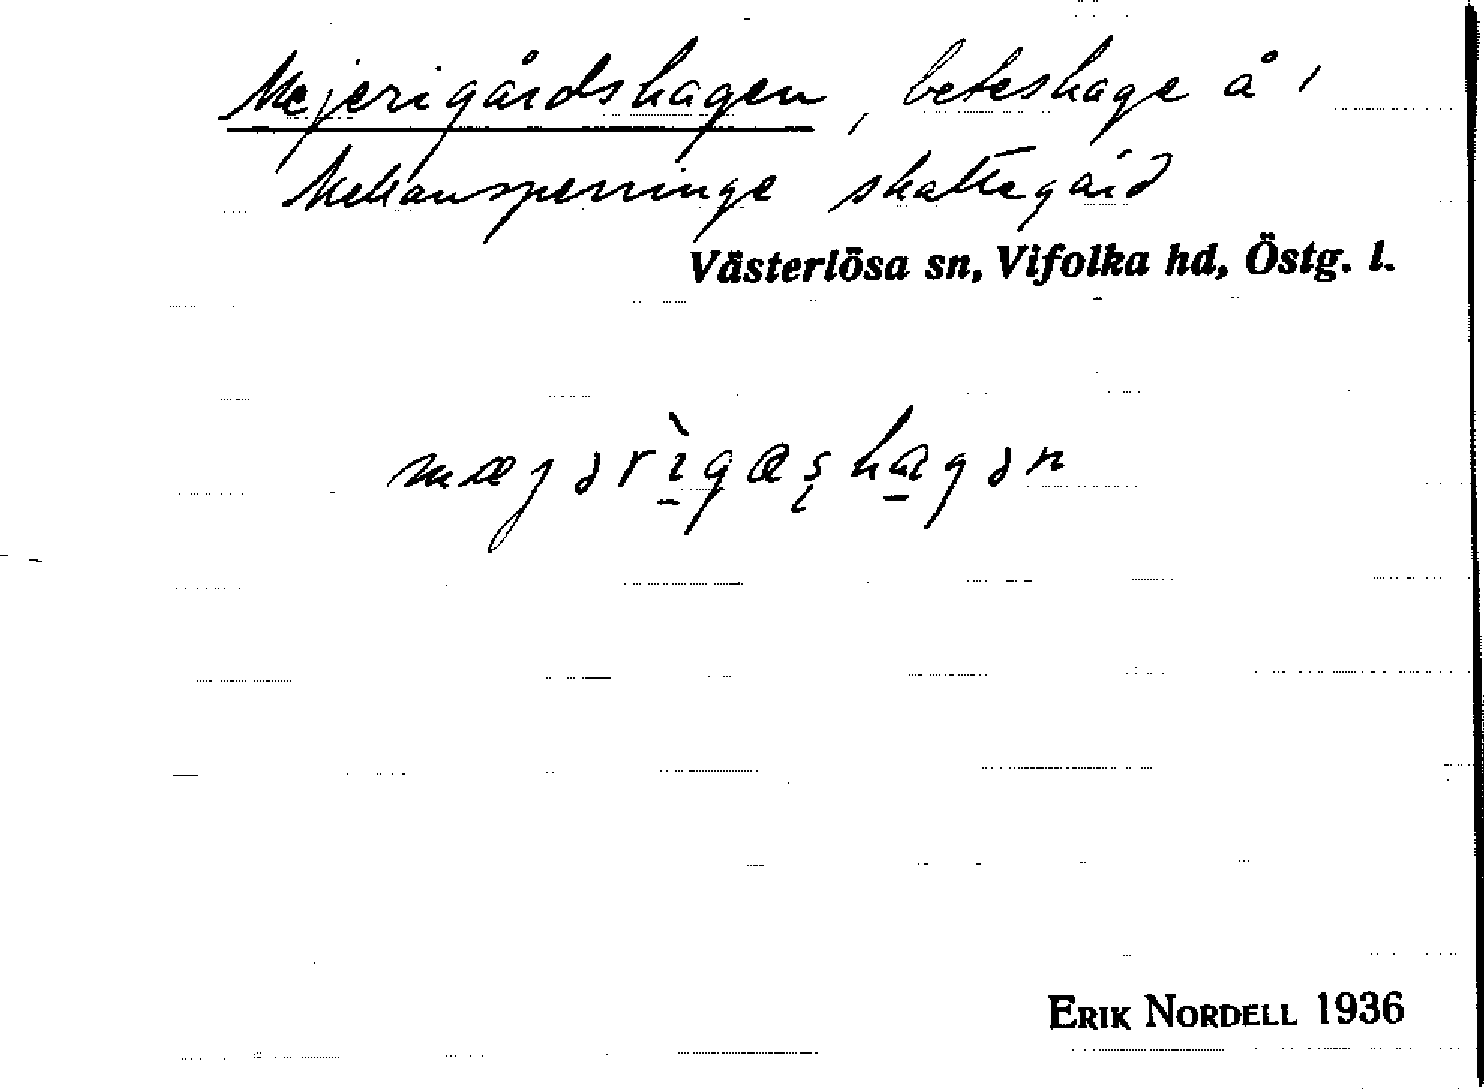 Mejerigårdshagen, beteshage å 1
Mellansperringe skattegård
Västerlösa sn, Vifolka hd, Östg. l.
mæjərìgaʂhagən
ERIK NORDELL 1936